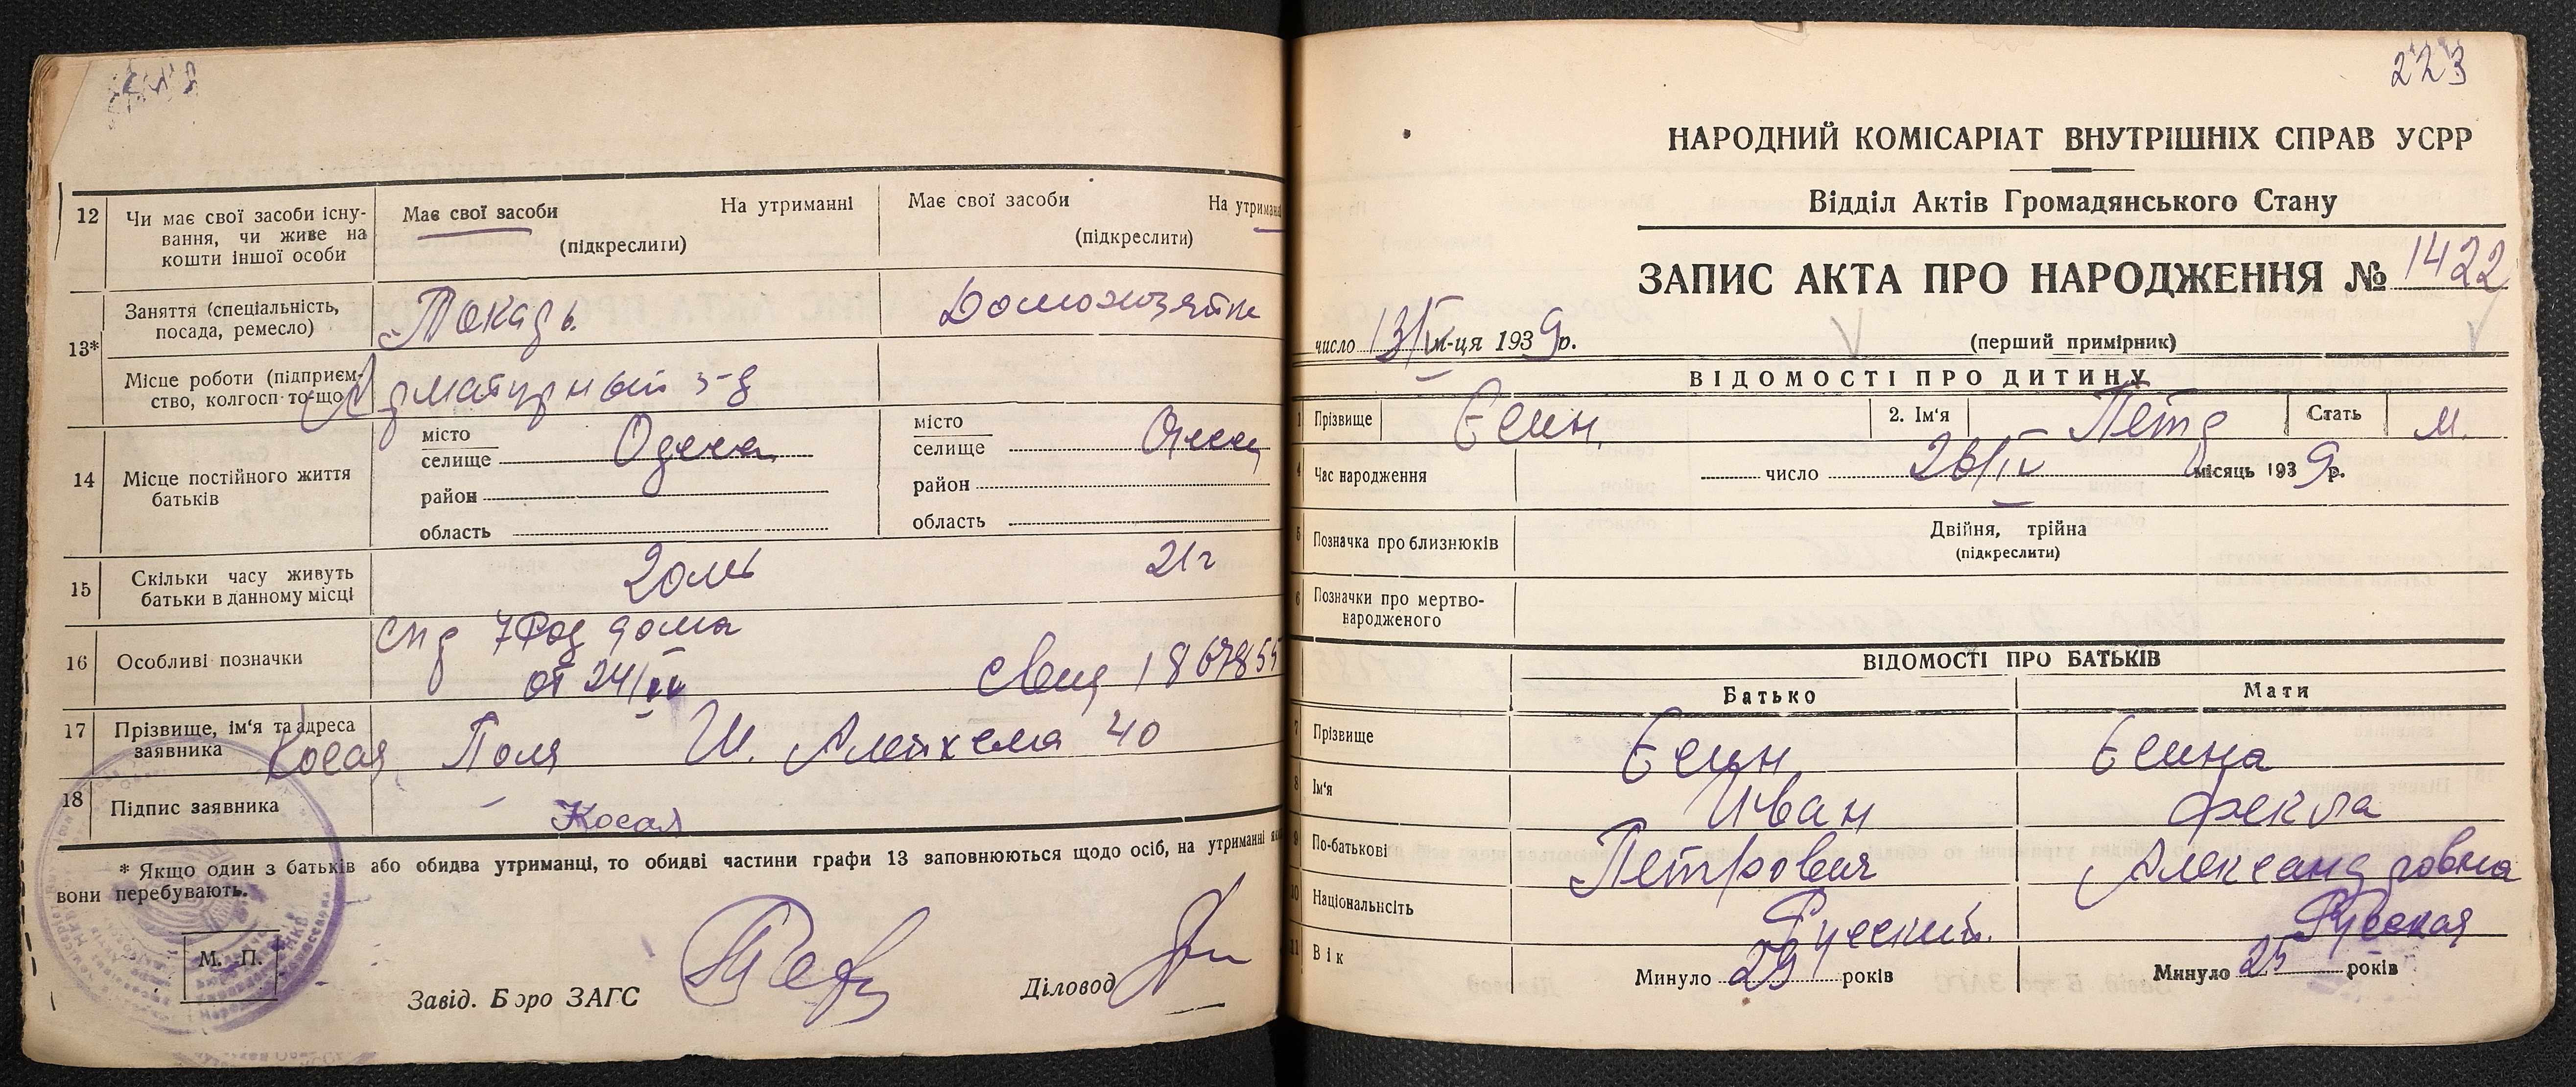 12
Чи має свої засоби існу-
вання, чи живе на
кошти іншої особи
Має свої засоби
На утриманні
(підкреслити)
Має свої засоби
На утриманн
(підкреслити)
13*
Заняття (спеціальність,
посада, ремесло)
Токарь
Домохозяйка
Місце роботи (підприєм-
ство, колгосп то-що)
Арматурный з-д
14
Місце постійного життя
батьків
місто
селище
Одеса
район
область
місто
селище
район
область
15
Скільки часу живуть
батьки в данному місці
20 лет
21 г
16
Особливі позначки
спр 7 Род дома
от 24/IV
Свид 186785
17
Прізвище, ім'я та адреса
заявника
Косая Поля Ш. Алейхема 40
18
Підпис заявника
Косая
* Якщо один з батьків або обидва утриманці, то обидві частини графи 13 заповнюються щодо осіб, на утриманні як
вони перебувають.
М. П.
Завід. Бюро ЗАГС
Діловод
223
НАРОДНИЙ КОМІСАРІАТ ВНУТРІШНІХ СПРАВ УСРР
Відділ Актів Громадянського Стану
ЗАПИС АКТА ПРО НАРОДЖЕННЯ № 1422
число 13/ м-ця 1939р.
(перший примірник)
ВІДОМОСТІ ПРО ДИТИНУ
1 Прізвище Єсин 2. Ім'я Пётр Стать м.
4 Час народження число 26/IV місяць 1939р.
5 Позначка про близнюків
Двійня, трійна
(підкреслити)
6 Позначки про мертво-
народженого
ВІДОМОСТІ ПРО БАТЬКІВ
Батько Мати
7 Прізвище Єсин Єсина
8 Ім'я Иван Фекла
9 По-батькові Петрович Александровна
10 Національність Русский. Русская
11 Вік Минуло 29 років Минуло 25 років